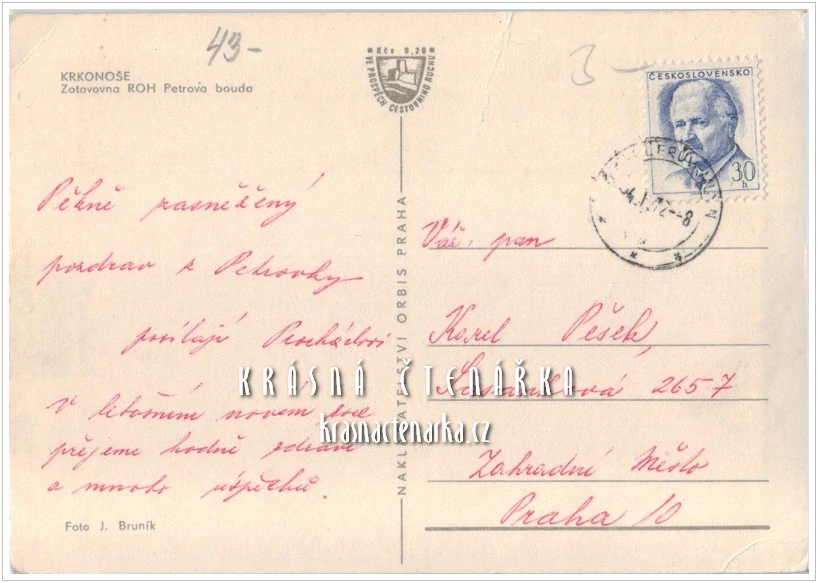 43-
3-
KRKONOŠE
Zotavovna ROH Petrova bouda
Kčs 0,20
VE PROSPĚCH CESTOVNÍHO RUCHU
ČESKOSLOVENSKO
30 h
Pěkně zasněžený
pozdrav z Petrovky
posílají Procházkovi
V letošním novém roce
přejeme hodně zdraví
a mnoho úspěchů.
Foto J. Bruník
NAKLADATELSTVÍ ORBIS PRAHA
Váž. pan
Karel Pešek,
2657
Zahradní Město
Praha 10
KRÁSNÁ ČTENÁŘKA
krasnactenarka.cz